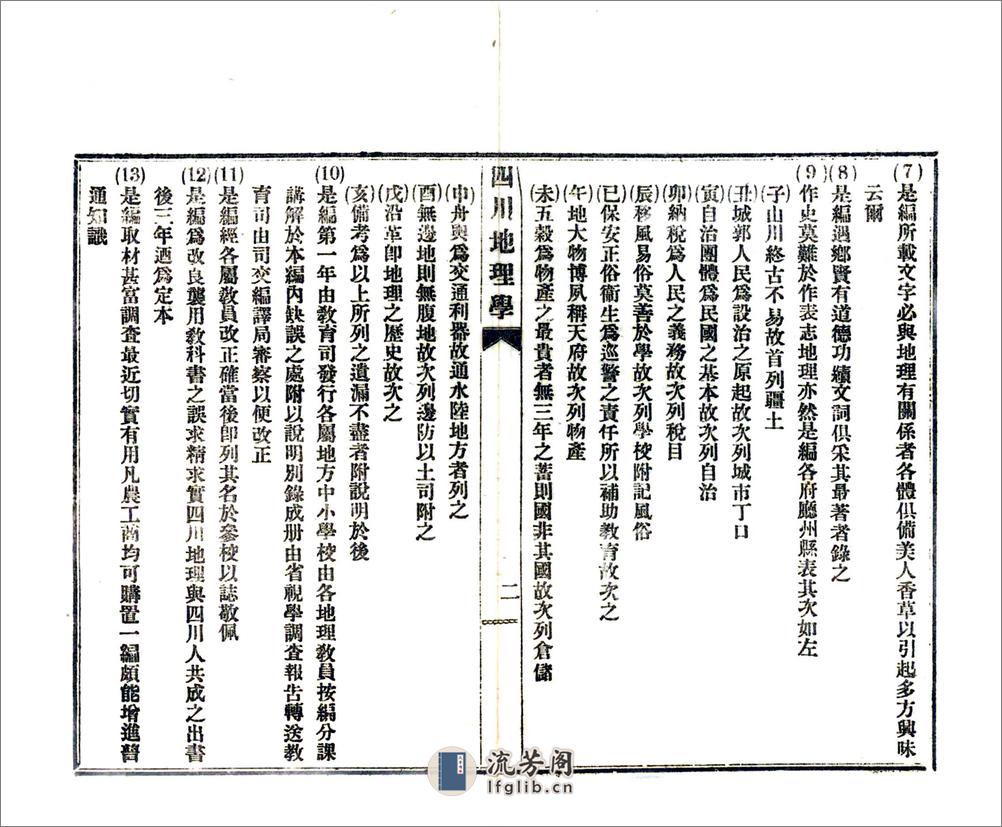 (7)是編所載文字必與地理有關係者各體俱備美人香草以引起多方興味
云爾
(8)是編遇鄉賢有道德功績文詞俱采其最著者錄之
(9)作史莫難於作表志地理亦然是編各府廳州縣表其次如左
(子)山川終古不易故首列疆土
(丑)城郭人民爲設治之原起故次列城市丁口
(寅)自治團體爲民國之基本故次列自治
(卯)納稅爲人民之義務故次列稅目
(辰)移風易俗莫善於學故次列學校附記風俗
(巳)保安正俗衞生爲巡警之責任所以補助教育故次之
(午)地大物博夙稱天府故次列物產
(未)五穀爲物產之最貴者無三年之蓄則國非其國故次列倉儲
四川地理學
二
(申)舟輿爲交通利器故通水陸地方者列之
(酉)無邊地則無腹地故次列邊防以土司附之
(戌)治革卽地理之歷史故次之
(亥)備考爲以上所列之遺漏不盡者附說明於後
(10)是編第一年由教育司發行各屬地方中小學校由各地理教員按編分課
講解於本編內缺誤之處附以說明別錄成册由省視學調查報告轉送教
育司由司交編譯局審察以便改正
(11)是編經各屬教員改正確當後卽列其名於參校以誌敬佩
(12)是編爲改良襲用教科書之誤求精求實四川地理與四川人共成之出書
後三年迺爲定本
(13)是編取材甚富調查最近切實有用凡農工商均可購置一編頗能增進普
通知識
流芳阁
lfglib.cn